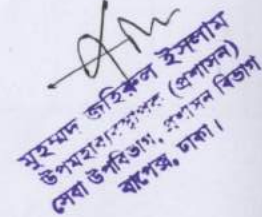 মুহম্মদ জহিরুল ইসলাম
উপমহাব্যবস্থাপক (প্রশাসন)
সেবা উপবিভাগ, প্রশাসন বিভাগ
বাপেক্স, ঢাকা।